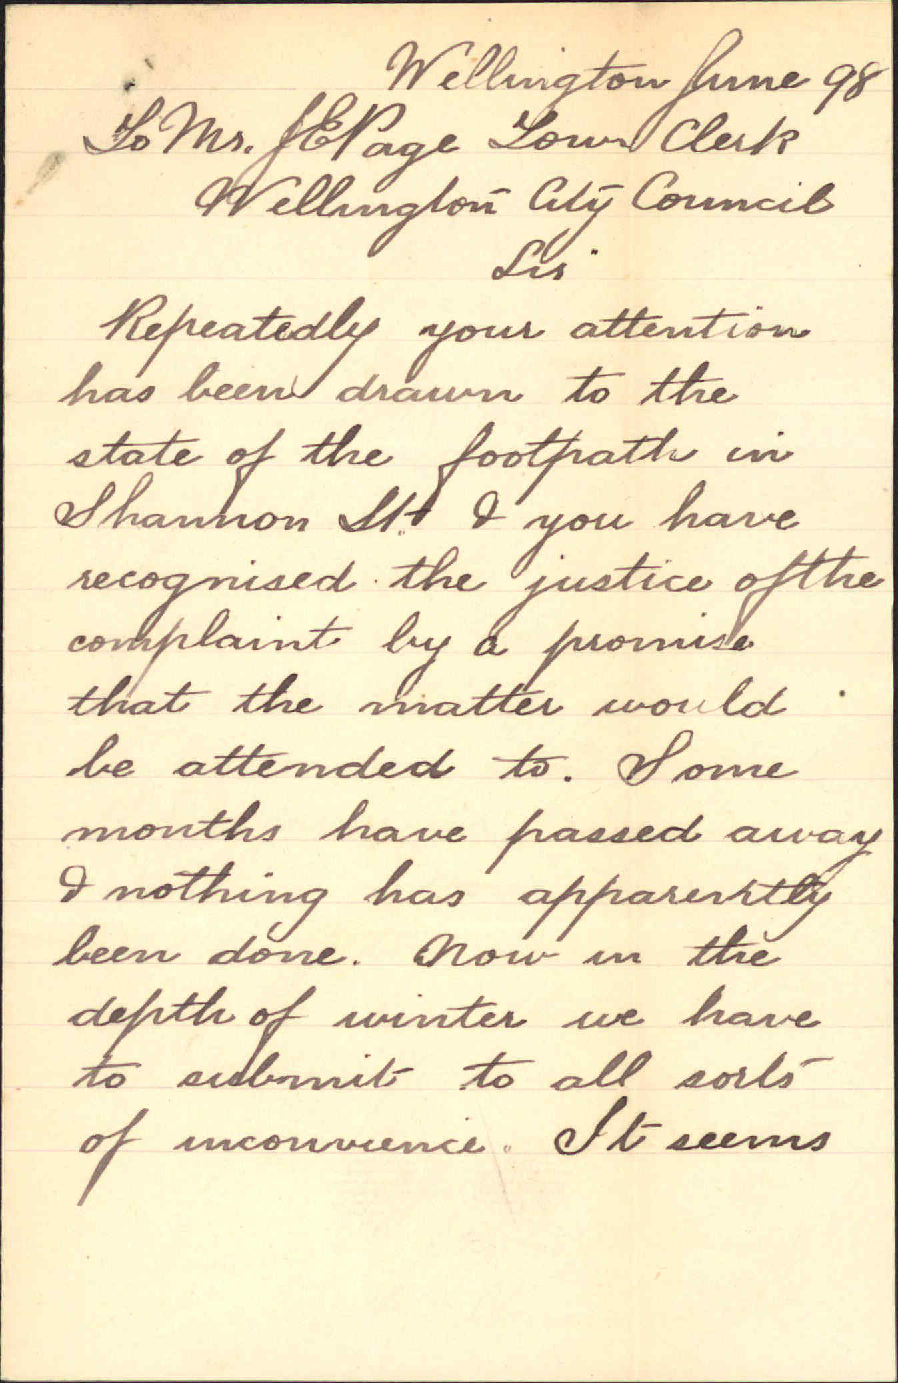 Wellington June 98
To Mr. J E Page Town Clerk
Wellington City Council
Sir
Repeatedly your attention
has been drawn to the
state of the footpath in
Shannon St. & you have
recognised the justice of the
complaint by a promise
that the matter would
be attended to. Some
months have passed away
& nothing has apparently
been done. Now in the
depth of winter we have
to submit to all sorts
of inconvience. It seems